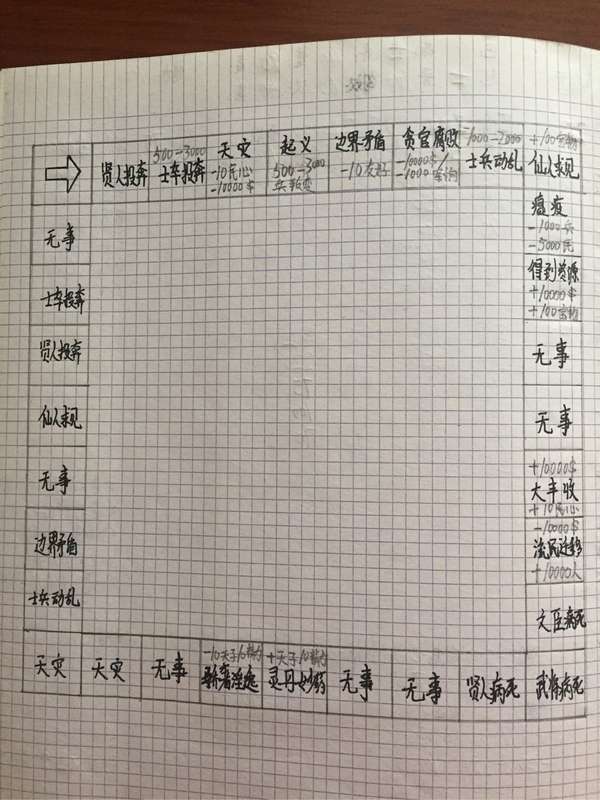 贤人投奔
500-3000
士车投奔
天灾
-10民心
-10000$
起义
500-3000
兵叛变
边界矛盾
-10友好
贪官腐败
-10000$/
-1000宝物
1000-2000
士兵动乱
+100宝物
仙人求见
瘟疫
-1000兵
-5000民
得到资源
+10000$
+100宝物
无事
无事
+10000$
大丰收
+10民心
-10000$
流民迁移
+10000人
文臣病死
武将病死
贤人病死
无事
无事
+天子10精力
灵丹妙药
-10天子10精力
骄奢淫逸
无事
天灾
天灾
士兵动乱
边界矛盾
无事
仙人求见
贤人投奔
士车投奔
无事